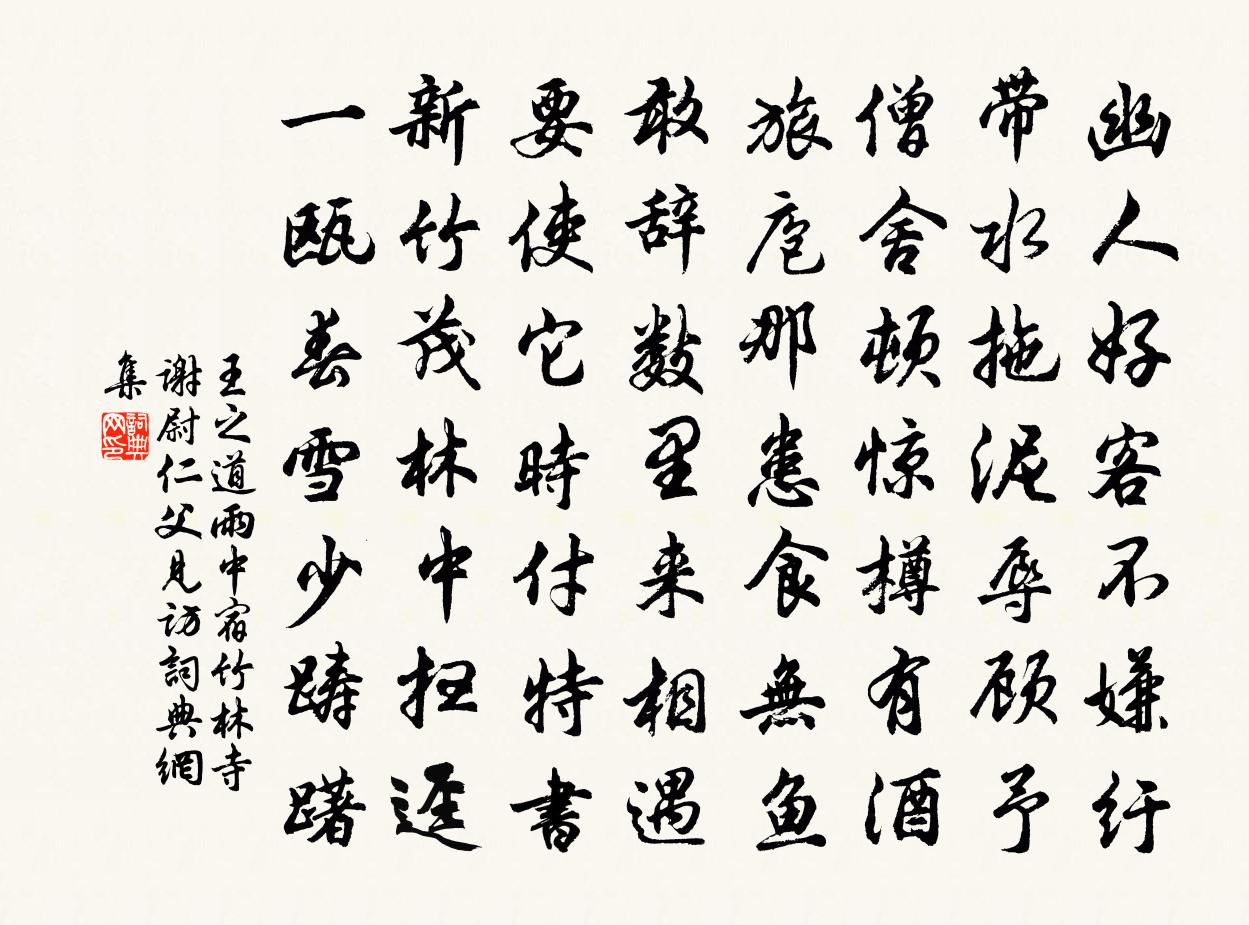 幽人好客不嫌纡
带水拖泥辱顾予
僧舍顿惊樽有酒
旅庖那患食無鱼
敢辞数里来相遇
要使它時付特書
新竹茂林中
一瓯春雪少踌躇
王之道雨中宿竹林寺
谢尉仁父見访詞典網
集
詞典网印